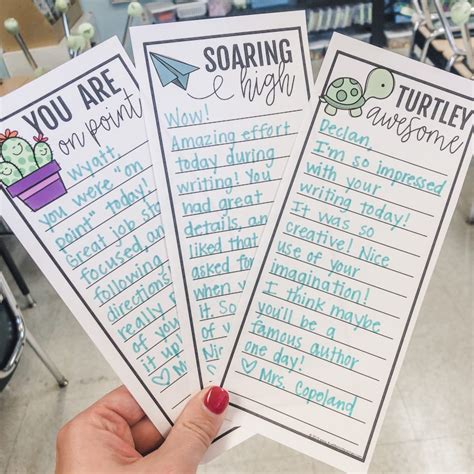 YOU ARE
on point
Wyatt,
you were "on
point" today!
Great job
focused, and
following
direction
really
of you
it up!
Mrs.
SOARING
high
Wow!
Amazing effort
today during
writing! You
had great
details, and
liked that
asked for
when
it. So
of
TURTLEY
awesome
Declan,
I'm so impressed
with your
writing today!
It was so
creative! Nice
use of your
imagination!
I think maybe
you'll be a
famous author
one day!
♡ Mrs. Copeland